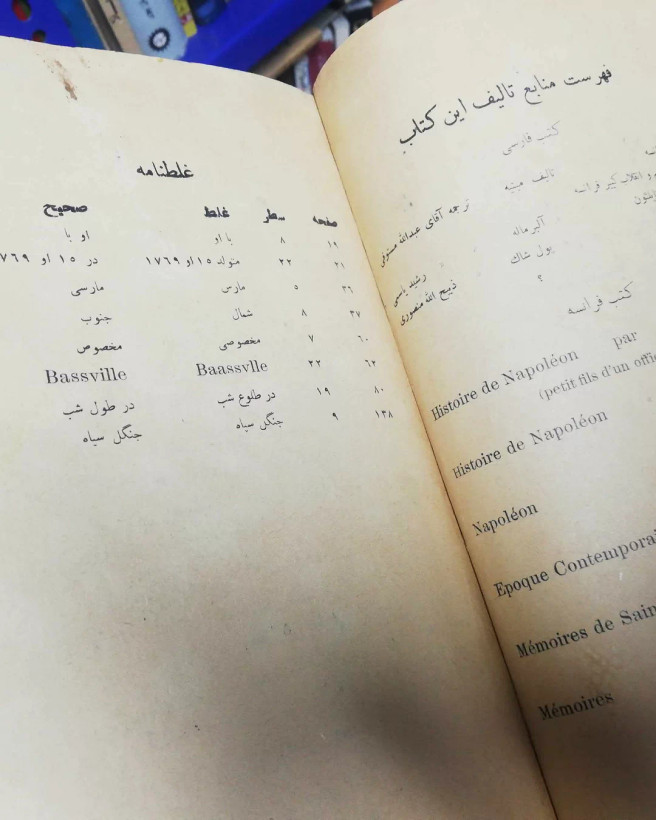 فهرست منابع تالیف این کتاب
کتب فارسی
تالیف مینیه
ترجمه آقای عبدالله مستوفی
آلبرماله
رشید یاسمی
پول شاک
ذبیح الله منصوری
؟
کتب فرانسه
Histoire de Napoléon par
(petit fils d'un offi
Histoire de Napoléon
Napoléon
Epoque Contempora
Mémoires de Sain
Mémoires
غلطنامه
صفحه سطر غلط صحیح
۱۹ ۸ با او او با
۲۱ ۲۲ متولد ۱۵ او ۱۷۶۹ در ۱۵ او ۷۶۹
۳۶ ۵ مارس مارسی
۳۷ ۸ شمال جنوب
۶۰ ۷ مخصوصی مخصوص
۶۲ ۲۲ Baassvlle Bassville
۸۰ ۱۹ در طلوع شب در طول شب
۱۳۸ ۹ جنگل سیاه جنگل سیاه